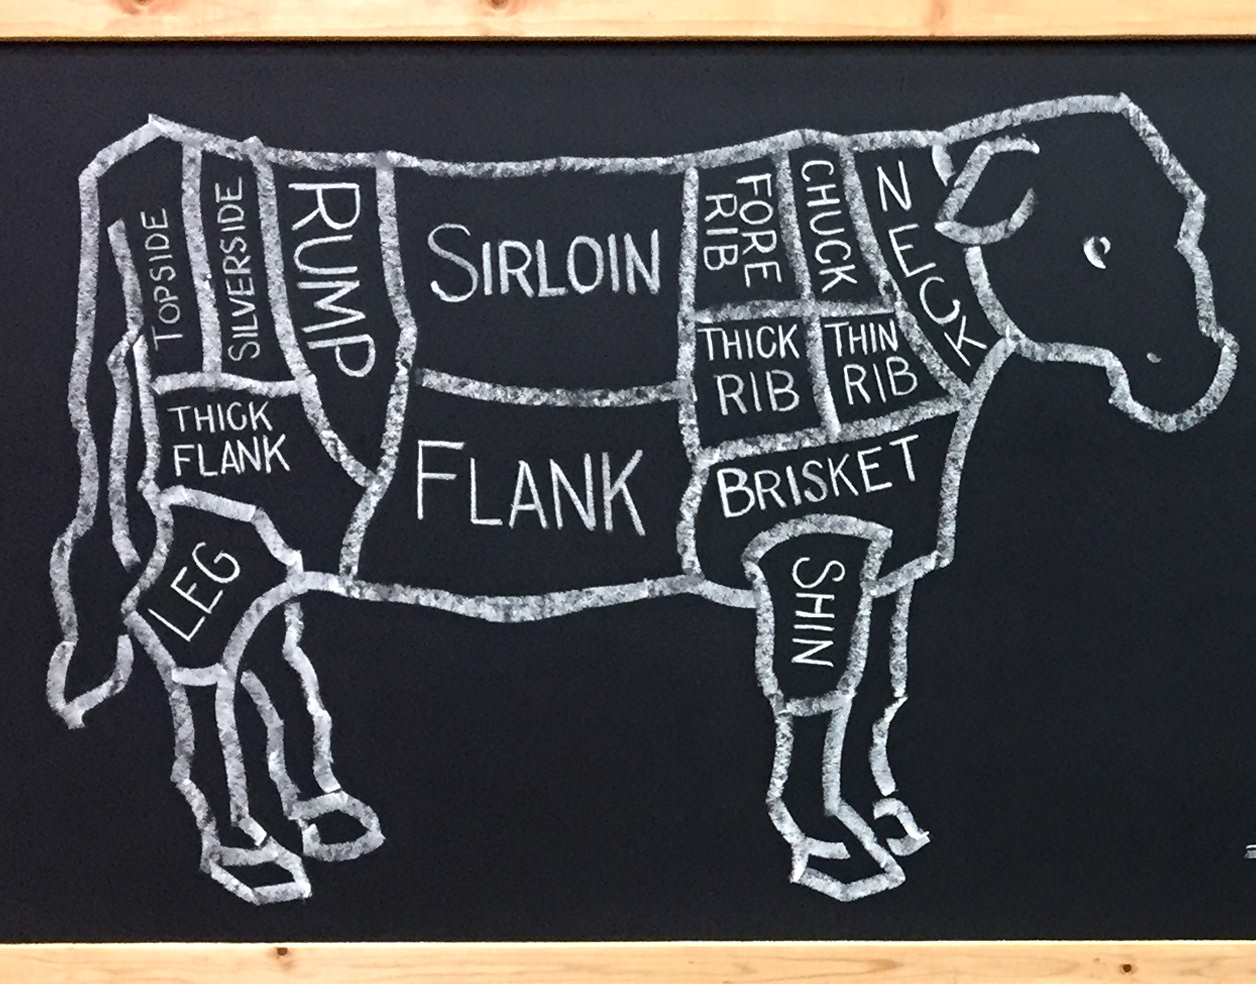 TOPSIDE
SILVERSIDE
RUMP
SIRLOIN
FORE
RIB
CHUCK
NECK
THICK
RIB
THIN
RIB
THICK
FLANK
FLANK
BRISKET
LEG
SHIN